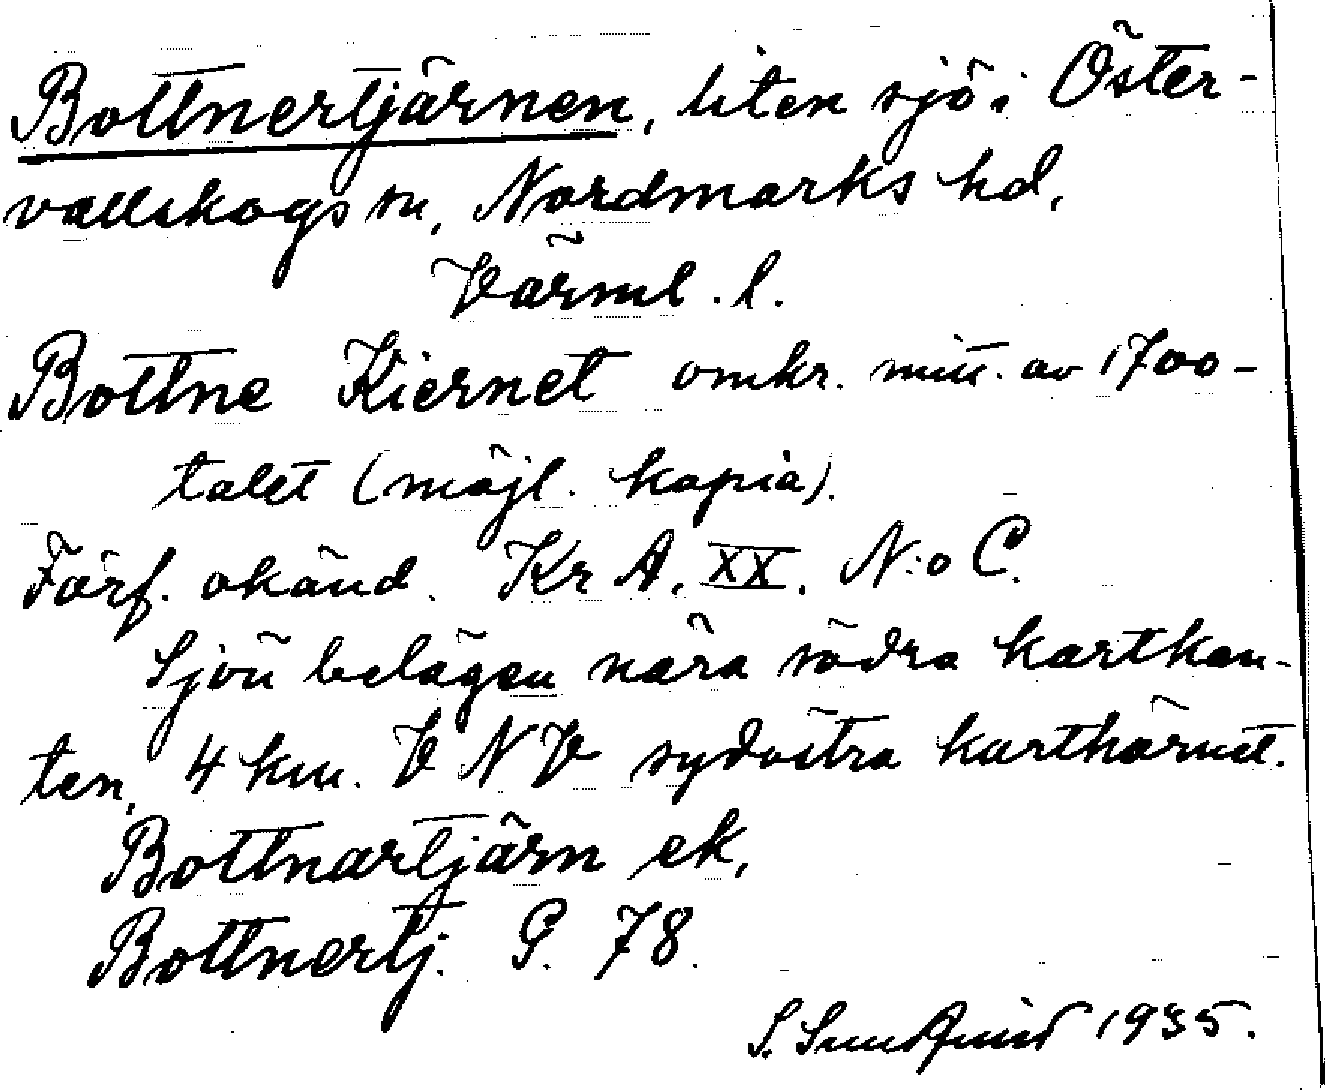 Bottnertjärnen, liten sjö i Öster-
vallskogs sn, Nordmarks hd,
Värml. l.
Bottne Kiernet omkr. mitt. av 1700-
talet (möjl. kopia).
Förf. okänd. Kr A. XX. N:o C.
Sjön belägen nära södra kartkan-
ten, 4 km. V N V sydöstra karthörnet.
Bottnartjärn ek,
Bottnertj. G. 78.
S. Sundquist 1935.